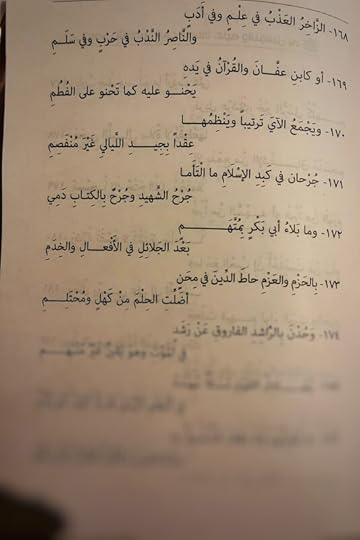 ١٦٨- الزَّاخِرُ العَذْبُ فِي عِلْمٍ وفي أَدَبٍ
والنَّاصِرُ النَّدْبُ فِي حَرْبٍ وفي سَلَمِ
١٦٩- أو كابنِ عفَّانَ والقُرْآنُ في يَدِهِ
يَحْنُو عليه كما تَحْنو على الفُطُمِ
١٧٠- ويَجْمَعُ الآيَ تَرتيباً ويَنْظِمُها
عقْداً بِجِيدِ اللَّيالي غَيْرَ مُنْفَصِمِ
١٧١- جُرْحان في كَبِدِ الإسْلامِ ما الْتَأَما
جُرْحُ الشَّهيدِ وجُرْحٌ بالكتابِ دَمِي
١٧٢- وما بَلاءُ أبي بَكْرٍ بِمُتَّهَمٍ
بَعْدَ الجَلائِلِ في الأَفْعالِ والخِدَمِ
١٧٣- بِالحَزْمِ والعَزْمِ حاطَ الدِّينَ في مِحَنٍ
أضَلَّتِ الحِلْمَ مِنْ كَهْلٍ ومُحْتَلِمِ
١٧٤- وَحُدْنَ بِالرَّاشِدِ الفاروقِ عَنْ رَشَدٍ
في المَوْتِ وهو يَقينٌ غَيْرُ مُنْبَهِمِ